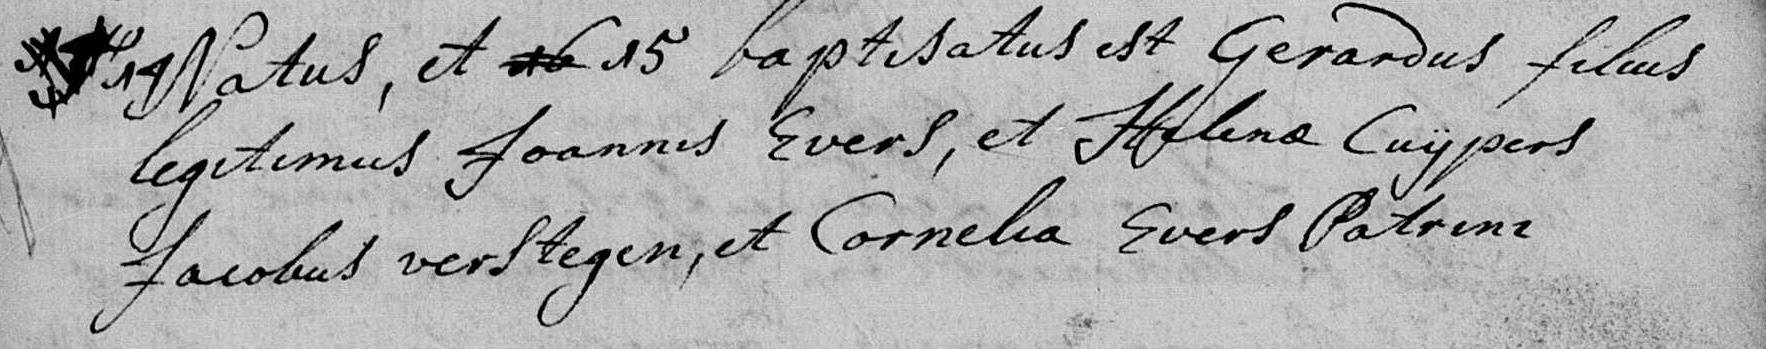 14 Natus, et 15 baptisatus est Gerardus filius
legitimus Joannis Evers, et Helenæ Cuÿpers
Jacobus verstegen, et Cornelia Evers Patrini